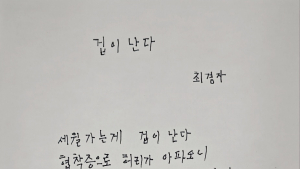 겁이 난다
최경자
세월가는게 겁이 난다
협착증으로 허리가 아파오니